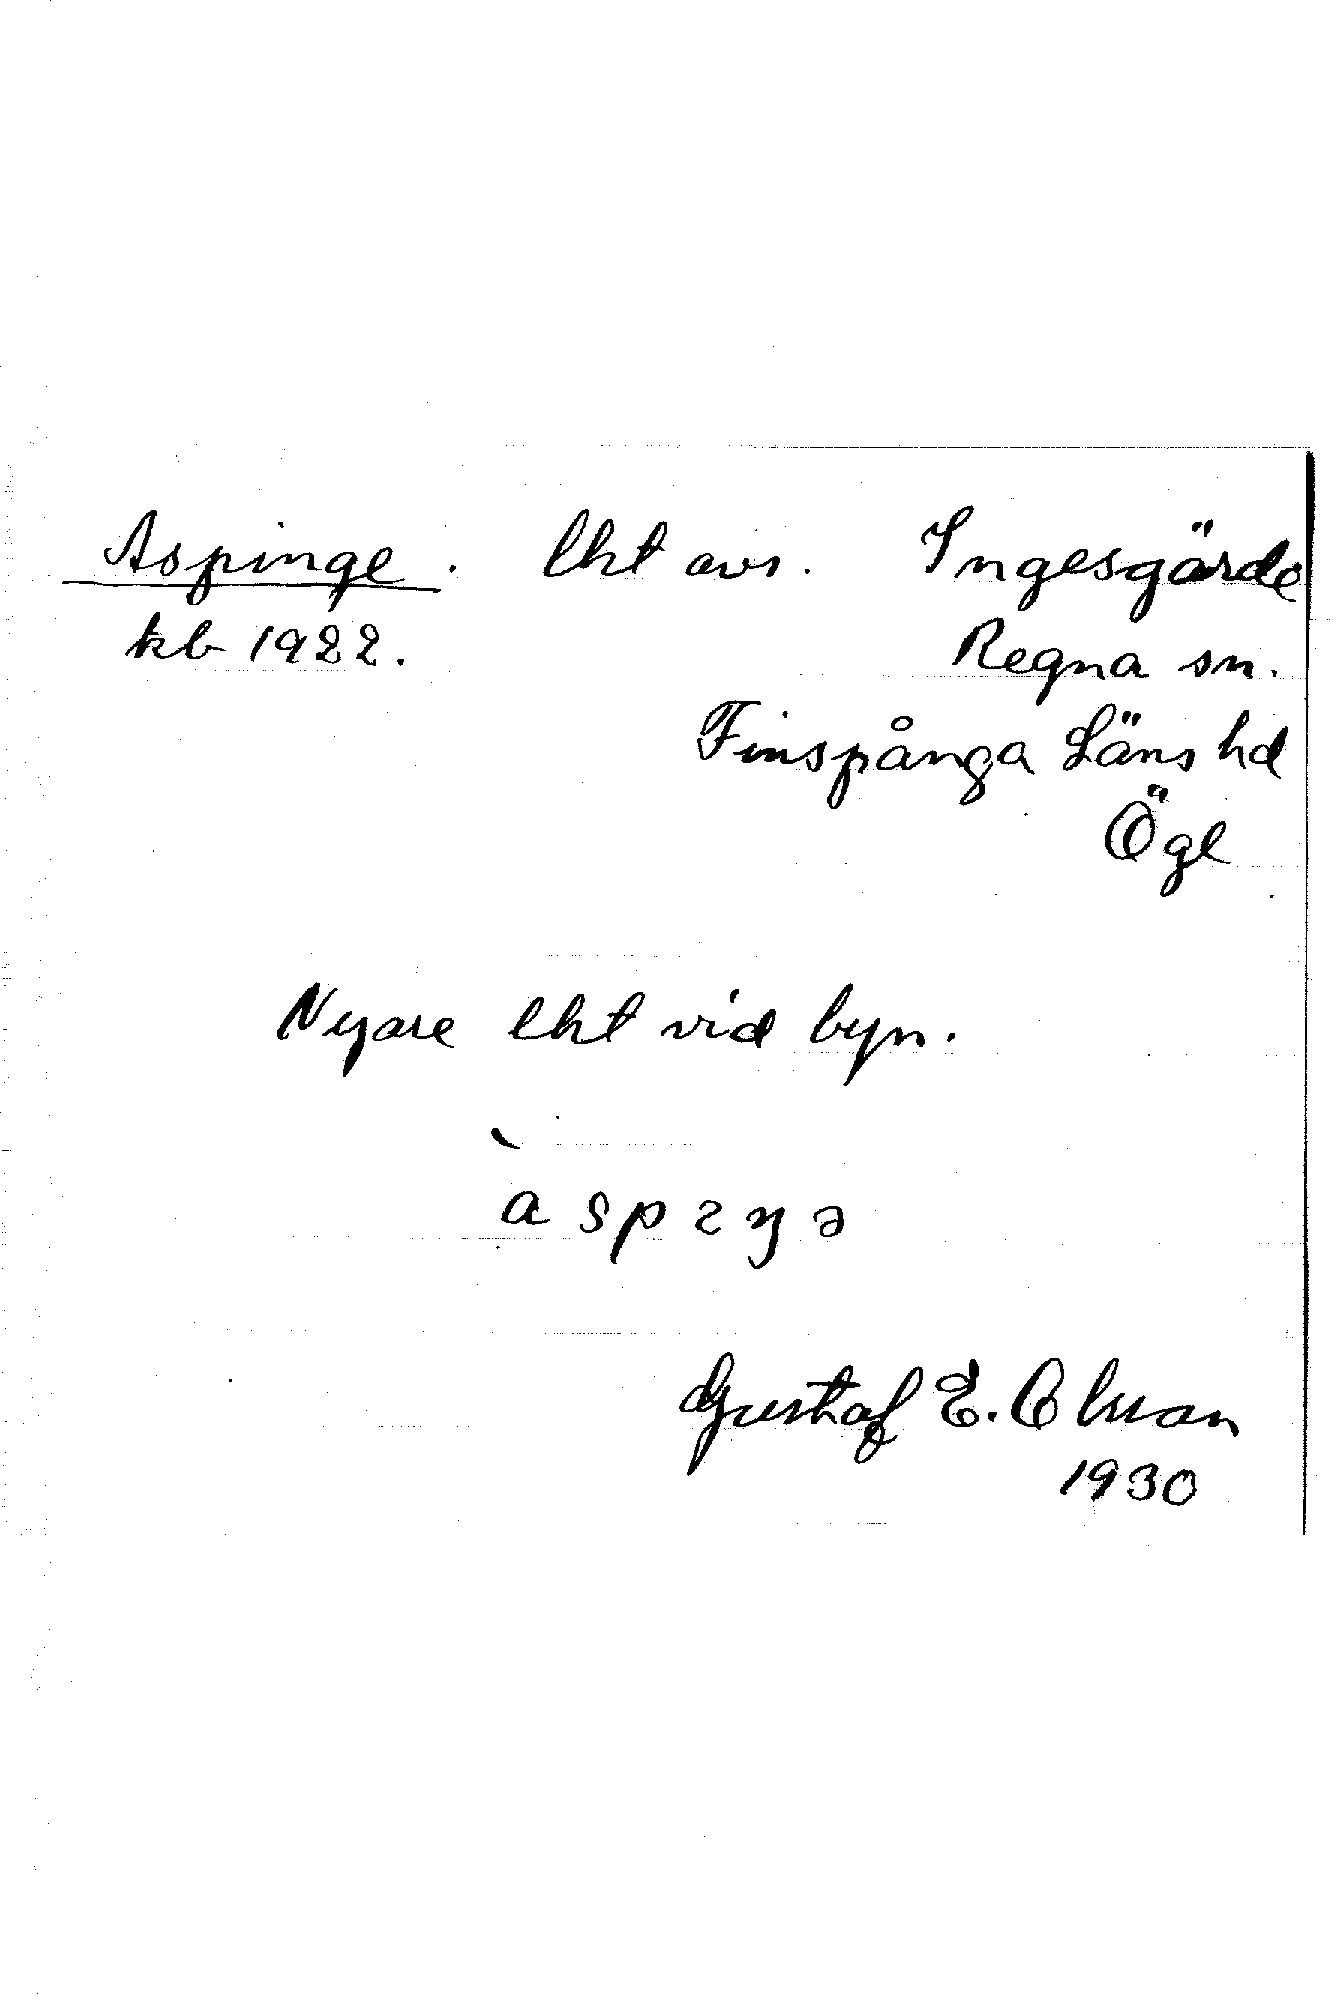 Aspinge. lht avs. Ingesgärde
kb 1922. Regna sn.
Finspånga Läns hd
Ögl
Nyare lht vid byn.
̀aspıŋə
Gustaf E.
1930